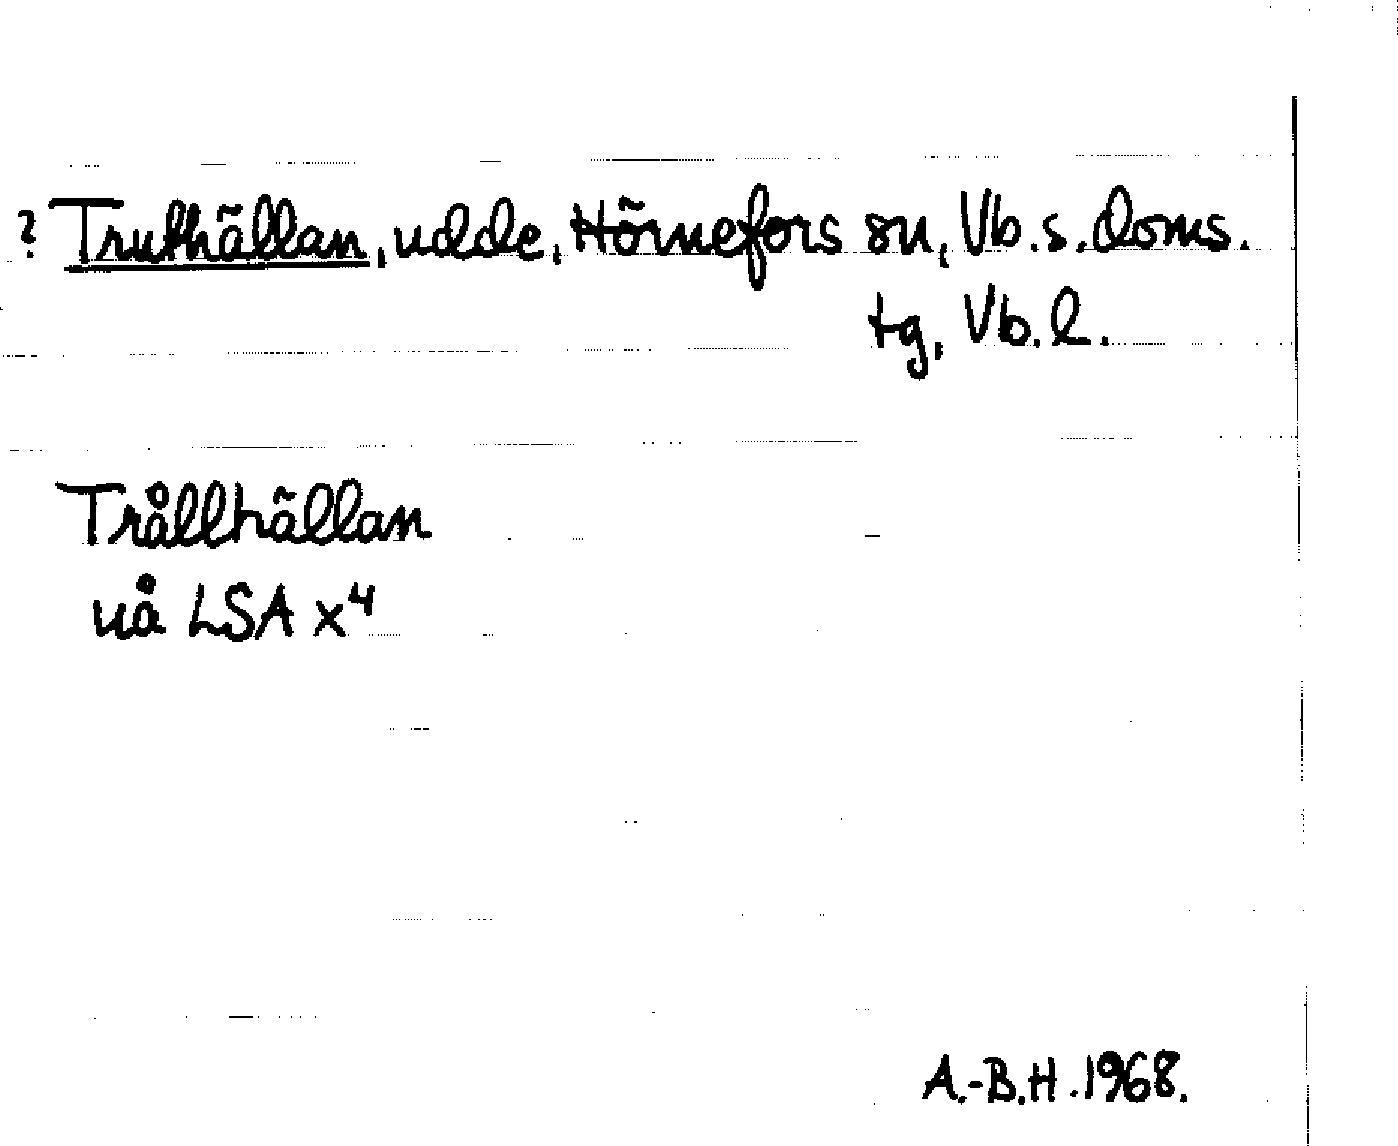 ? Truthällan, udde, Hörnefors sn, Vb.s.doms.
tg, Vb.l.
Trållhällan
uå LSA x⁴
A.-B.H. 1968.